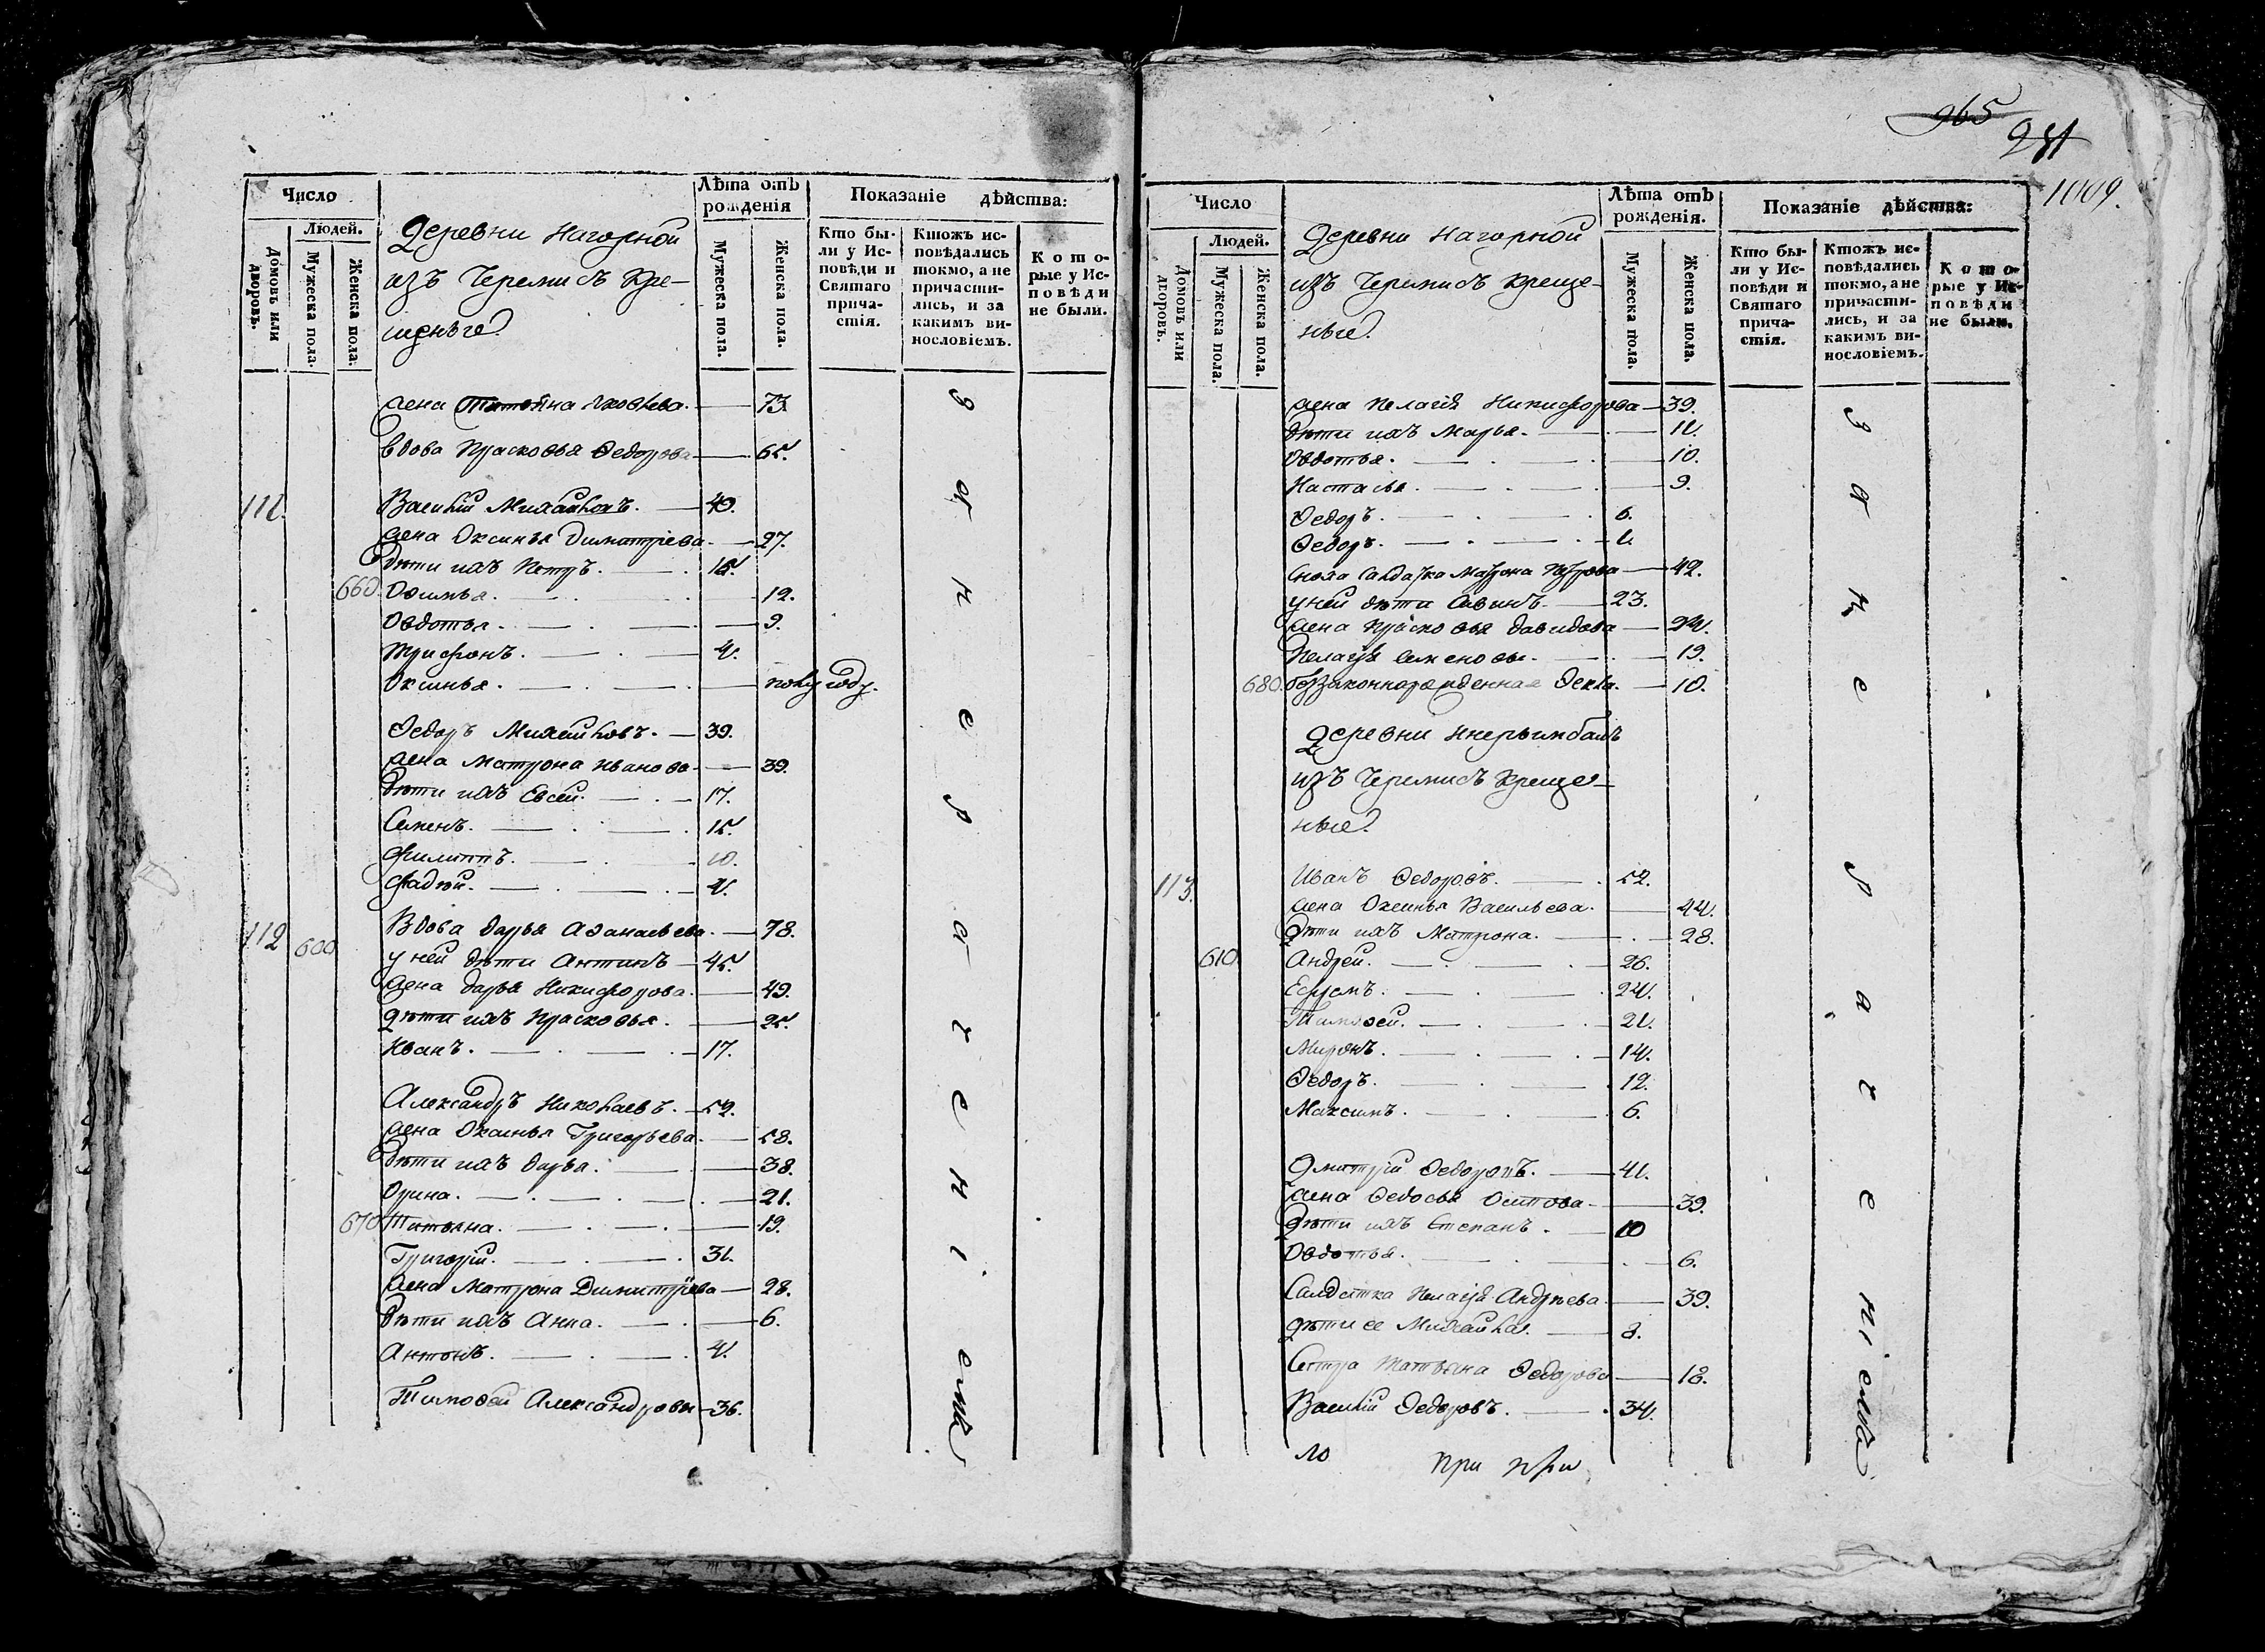 965
1009.
Число
Лѣта отъ рожденія
Показаніе дѣйства:
Людей.
Домовъ или дворовъ.
Мужеска пола.
Женска пола.
Деревни Нагорной
изъ Черемисъ Кре-
щеные
Мужеска пола.
Женска пола.
Кто бы-
ли у Ис-
повѣди и
Святаго
прича-
стія.
Ктожъ ис-
повѣдались
токмо, а не
причасти-
лись, и за
какимъ ви-
нословіемъ.
Кото-
рые у Ис-
повѣди
не были.
жена Татьяна Яковлева. 73
вдова Прасковья Ѳедорова 65.
111. Василій Михайловъ. 40.
жена Оксинья Димитріева. 27.
дѣти ихъ Петръ. 15.
660. 12.
Овдотья. 9.
Трифонъ. 4.
Оксинья. полугоду.
Ѳедоръ Михайловъ. 39.
жена Матрона Иванова 39.
дѣти ихъ Евсей. 17.
Семенъ. 15.
Филиппъ. 10.
Фадѣй. 4.
112 600 Вдова Дарья Аѳанасьева. 78.
у ней дѣти Антипъ 45.
жена Дарья Никифорова. 49.
дѣти ихъ Прасковья. 25.
Иванъ. 17.
Александръ Николаевъ. 52.
жена Оксинья Григорьева. 58.
дѣти ихъ Дарья. 38.
Орина. 21.
670 Татьяна. 19.
Григорій. 31.
жена Матрона Димитріева 28.
дѣти ихъ Анна. 6.
Антонъ. 4.
Тимоѳей Александровы 36.
за нерачениемъ
Число
Лѣта отъ рожденія.
Показаніе дѣйства:
Людей.
Домовъ или дворовъ.
Мужеска пола.
Женска пола.
Деревни Нагорной
изъ Черемисъ Креще-
ные
Мужеска пола.
Женска пола.
Кто бы-
ли у Ис-
повѣди и
Святаго
прича-
стія.
Ктожъ ис-
повѣдались
токмо, а не
причасти-
лись, и за
какимъ ви-
нословіемъ.
Кото-
рые у Ис-
повѣди
не были.
жена Пелагія Никифорова 39.
дѣти ихъ Марья. 11.
Овдотья. 10.
Настасья. 9.
Ѳедоръ. 6.
Ѳедоръ. 1.
сноха салдатка Матрона Петрова 42.
у ней дѣти Савинъ. 23.
жена Прасковья Давидова 24.
Пелагія Семеновы. 19.
680. беззаконнорожденная Ѳекла. 10.
Деревни
изъ Черемисъ Креще-
ные
113. Иванъ Ѳедоровъ. 52.
жена Оксинья Васильева. 44.
дѣти ихъ Матрона. 28.
610. Андрей. 26.
Ефремъ. 24.
Тимоѳей. 21.
Миронъ. 14.
Ѳедоръ. 12.
Максимъ. 6.
Дмитрій Ѳедоровъ. 41.
жена Ѳедосья Осипова 39.
дѣти ихъ Степанъ. 10
Овдотья. 6.
Салдатка Пелагія Андрѣева 39.
дѣти ее Михайла. 8.
Сестра Татьяна Ѳедорова 18.
Василій Ѳедоровъ. 34.
ло при при
за нерачениемъ